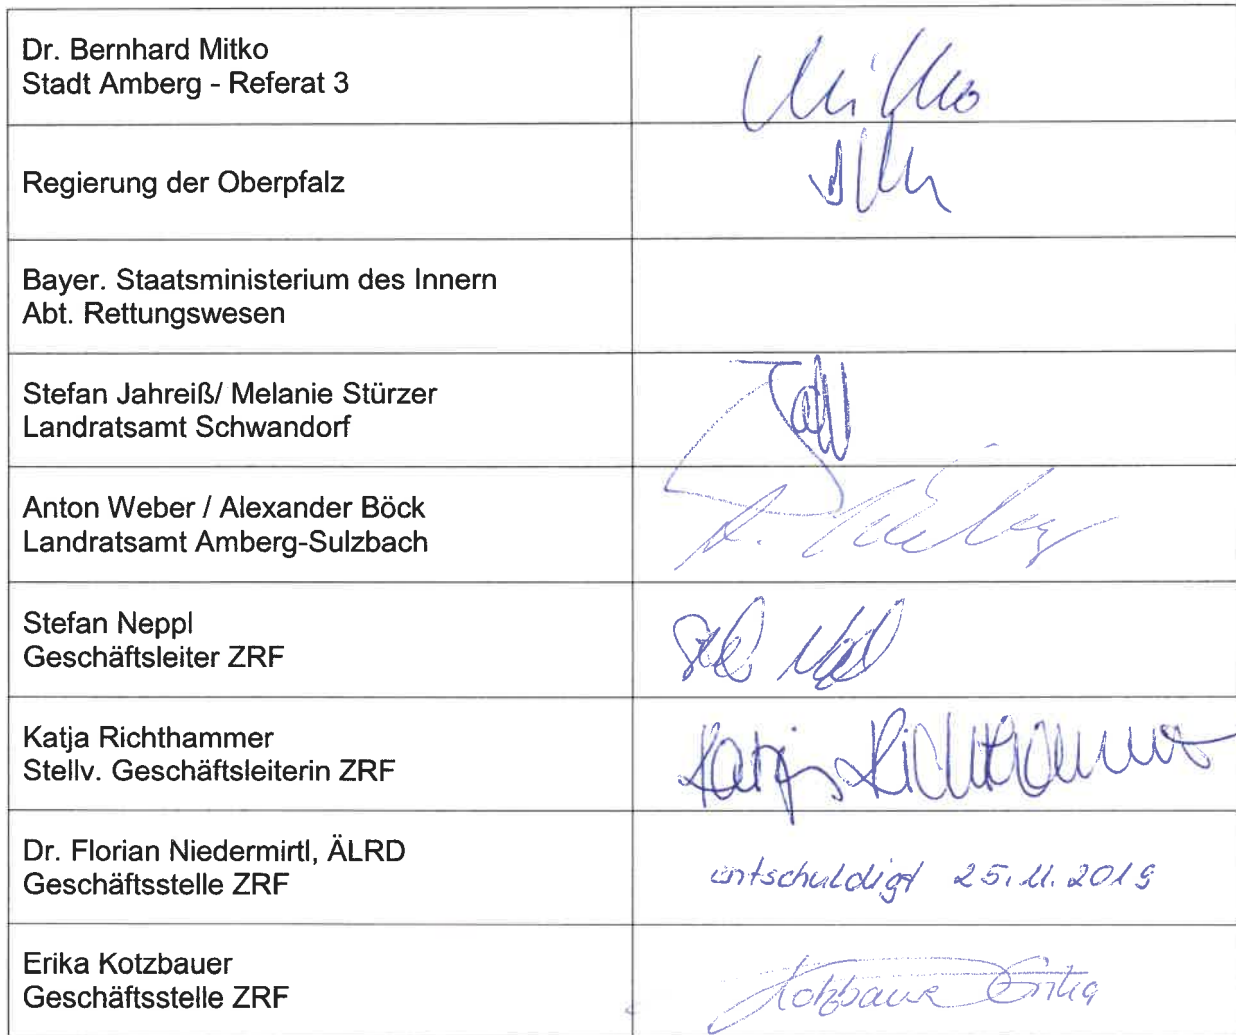 Dr. Bernhard Mitko
Stadt Amberg - Referat 3
Mitko
Regierung der Oberpfalz
Bayer. Staatsministerium des Innern
Abt. Rettungswesen
Stefan Jahreiß/ Melanie Stürzer
Landratsamt Schwandorf
Anton Weber / Alexander Böck
Landratsamt Amberg-Sulzbach
A. Weber
Stefan Neppl
Geschäftsleiter ZRF
Katja Richthammer
Stellv. Geschäftsleiterin ZRF
Katja Richthammer
Dr. Florian Niedermirtl, ÄLRD
Geschäftsstelle ZRF
entschuldigt 25.11.2019
Erika Kotzbauer
Geschäftsstelle ZRF
Kotzbauer Erika